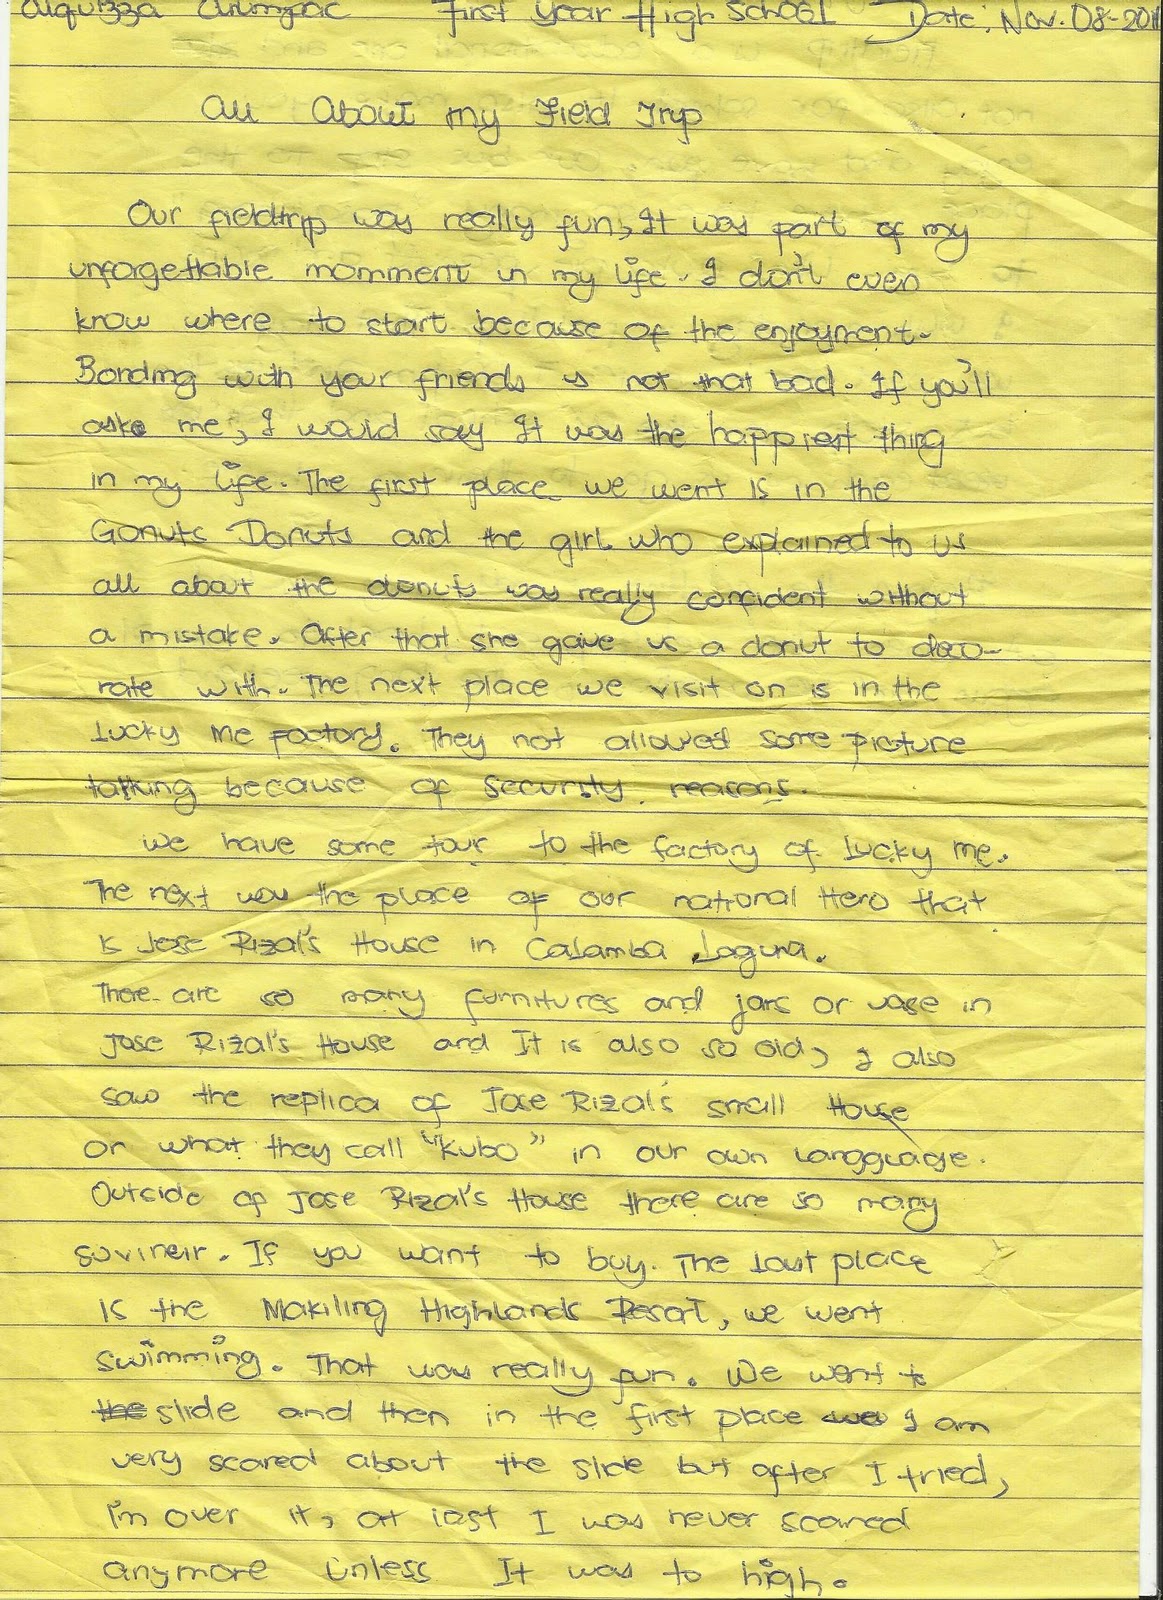 Alquizza First Year High School Date: Nov. 08-2011
All About my Field Trip
Our fieldtrip was really fun, It was part of my
unforgettable momment in my life. I don't even
know where to start because of the enjoyment.
Bonding with your friends is not that bad. If you'll
ask me, I would say It was the happiest thing
in my life. The first place we went is in the
Gonuts Donuts and the girl who explained to us
all about the donuts was really confident without
a mistake. After that she gave us a donut to deco-
rate with. The next place we visit on is in the
Lucky Me factory. They not allowed some picture
talking because of security reasons.
We have some tour to the factory of Lucky me.
The next was the place of our national Hero that
is Jose Rizal's House in Calamba Laguna.
There are so many furnitures and jars or vase in
Jose Rizal's House and It is also so old, I also
saw the replica of Jose Rizal's small House
or what they call "kubo" in our own langguage.
Outside of Jose Rizal's House there are so many
suvineir. If you want to buy. The last place
is the Makiling Highlands Resort, we went
swimming. That was really fun. We went to
the slide and then in the first place was I am
very scared about the slide but after I tried,
i'm over it, at last I was never scared
anymore Unless It was to high.